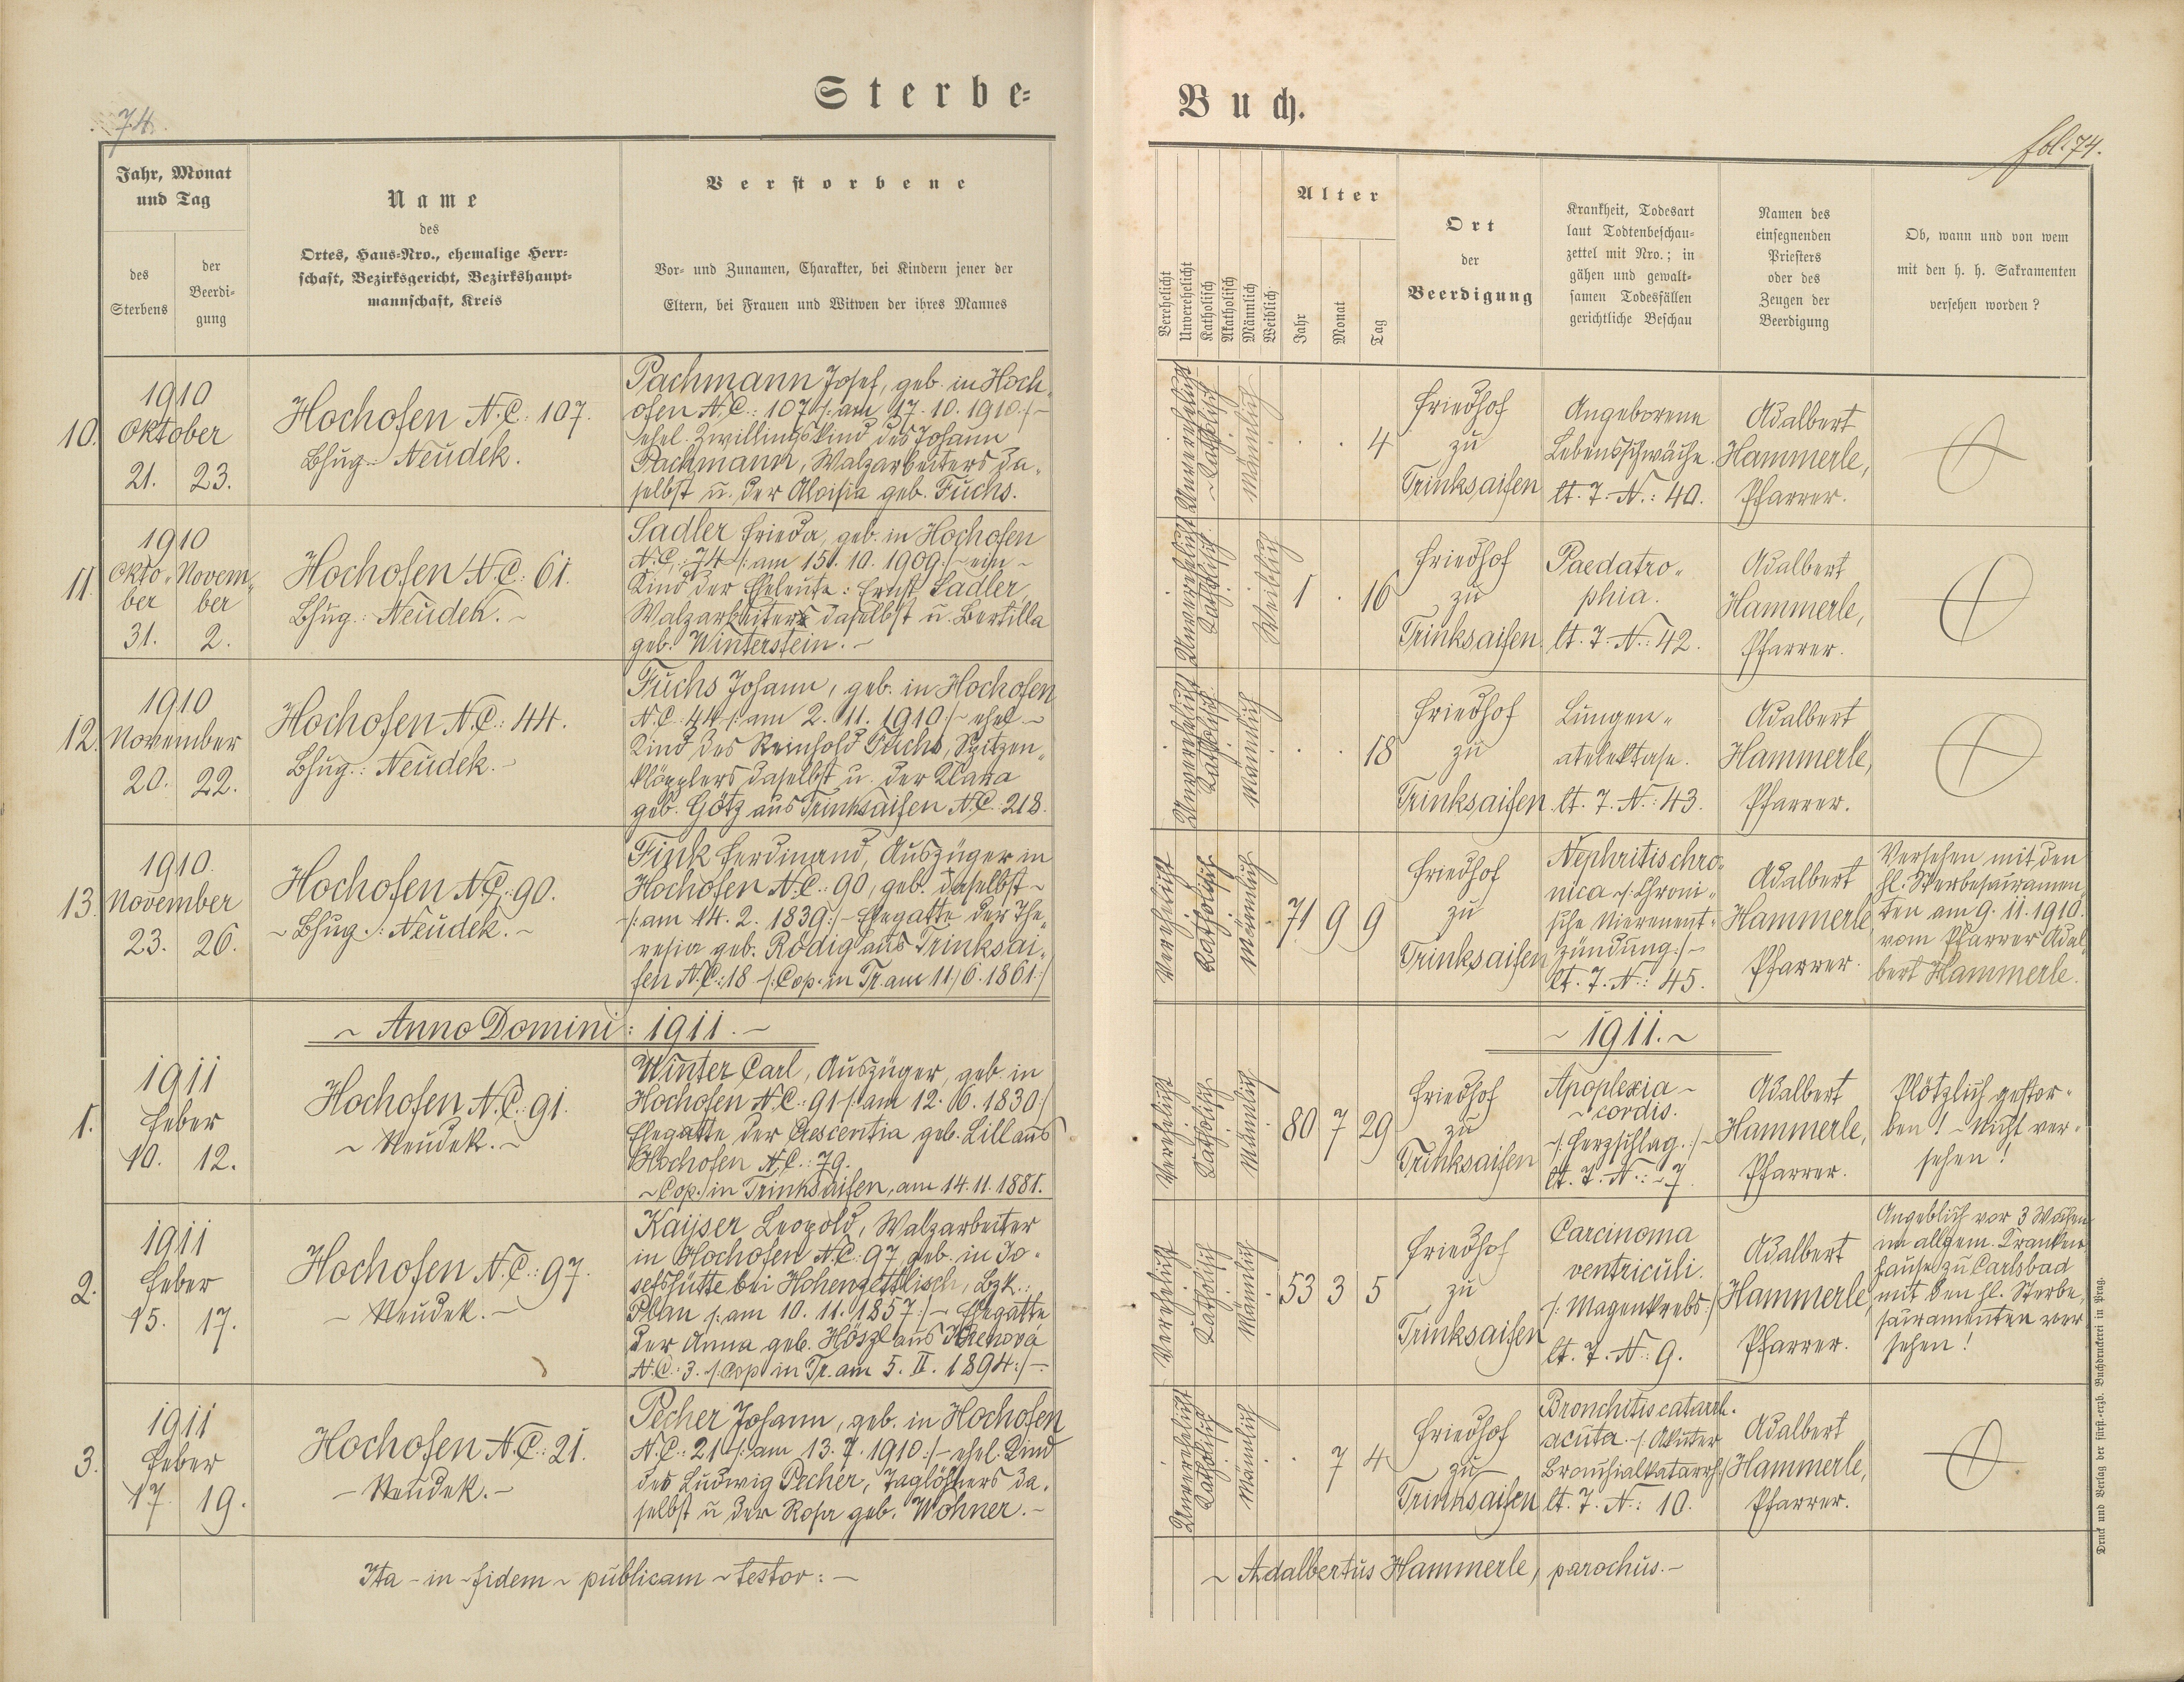 Sterbe=
Buch.
74.
fol. 74.
Jahr, Monat
und Tag
des
Sterbens
der
Beerdi=
gung
Name
des
Ortes, Haus=Nro., ehemalige Herr=
schaft, Bezirksgericht, Bezirkshaupt=
mannschaft, Kreis
Verstorbene
Vor= und Zunamen, Charakter, bei Kindern jener der
Eltern, bei Frauen und Witwen der ihres Mannes
Verehelicht
Unverehelicht
Katholisch
Akatholisch
Männlich
Weiblich
Alter
Jahr
Monat
Tag
Ort
der
Beerdigung
Krankheit, Todesart
laut Todtenbeschau=
zettel mit Nro.; in
gähen und gewalt=
samen Todesfällen
gerichtliche Beschau
Namen des
einsegnenden
Priesters
oder des
Zeugen der
Beerdigung
Ob, wann und von wem
mit den h. h. Sakramenten
versehen worden?
10.
1910
Oktober
21. 23.
Hochofen N.C.: 107.
Bhug.: Neudek.
Pachmann Josef, geb. in Hoch„
ofen N.C.: 107 /: am 17. 10. 1910 :/-
ehel. Zwillingskind des Johann
Pachmann, Walzarbeiters da„
selbst u. der Aloisia geb. Fuchs.
Unverehelicht
Katholisch
Männlich
4
Friedhof
zu
Trinksaifen
Angeborene
Lebensschwäche.
lt. T. N.: 40.
Adalbert
Hammerle,
Pfarrer.
11.
1910
Okto„ Novem„
ber ber
31. 2.
Hochofen N.C.: 61.
Bhug.: Neudek. ~
Sadler Frieda, geb. in Hochofen
N.C.: 74 /: am 15. 10. 1909 :/ ~ ehe ~
Kind der Eheleute: Ernst Sadler,
Walzarbeiters daselbst u. Bertilla
geb. Winterstein. ~
Unverehelicht
Katholisch
Weiblich
1 . 16
Friedhof
zu
Trinksaifen.
Paedatro„
phia.
lt. T. N.: 42.
Adalbert
Hammerle,
Pfarrer.
12.
1910
November
20. 22.
Hochofen N.C.: 44.
Bhug.: Neudek. ~
Fuchs Johann, geb. in Hochofen
N.C. 44 /: am 2. 11. 1910 :/ ~ ehel ~
Kind des Reinhold Fuchs, Spitzen„
klöpplers daselbst u. der Maria
geb. Götz aus Trinksaifen N.C. 218.
Unverehelicht
Katholisch
Männlich
18
Friedhof
zu
Trinksaifen.
Lungen„
atelektase.
lt. T. N.: 43.
Adalbert
Hammerle,
Pfarrer.
13.
1910.
November
23. 26.
Hochofen N.C.: 90.
~ Bhug.: Neudek. ~
Fink Ferdinand, Auszüger in
Hochofen N.C.: 90, geb. daselbst ~
/: am 14. 2. 1839 :/ - Ehegatte der The„
resia geb. Rödig aus Trinksai„
fen N.C.: 18 /: Cop. in Tr. am 11/6. 1861 :/
Verehelicht
Katholisch
Männlich
71 9 9
Friedhof
zu
Trinksaifen
Nephritis chro„
nica /: Chroni„
sche Nierenent„
zündung :/-
lt. T. N.: 45.
Adalbert
Hammerle
Pfarrer.
Versehen mit den
hl. Sterbesacramen„
ten am 9. 11. 1910.
vom Pfarrer Adal„
bert Hammerle.
~ Anno Domini: 1911. ~
~ 1911. ~
1.
1911
Feber
10. 12.
Hochofen N.C.: 91.
~ Neudek. ~
Winter Carl, Auszüger, geb. in
Hochofen N.C.: 91 /: am 12. 6. 1830 :/
Ehegatte der Crescentia geb. Lill aus
Hochofen N.C.: 79.
~ Cop. in Trinksaifen, am 14. 11. 1881.
Verehelicht
Katholisch
Männlich
80 7 29
Friedhof
zu
Trinksaifen
Apoplexia ~
~ cordis.
~ /: Herzschlag. :/ ~
lt. T. N.: ~ 7
Adalbert
Hammerle,
Pfarrer.
Plötzlich gestor„
ben! ~ Nicht ver„
sehen!
2.
1911
Feber
15. 17.
Hochofen N.C.: 97.
~ Neudek. ~
Kaijser Leopold, Walzarbeiter
in Hochofen N.C. 97 geb. in Jo„
sefshütte bei Hohenzettlisch, Bzk.:
Plan /: am 10. 11. 1857 :/ ~ Ehegatte
der Anna geb. Höszl aus
N.C.: 3. /: Cop. in Tr. am 5. II. 1894 :/ ~
Verehelicht
Katholisch
Männlich
53 3 5
Friedhof
zu
Trinksaifen
Carcinoma
ventriculi.
/: Magenkrebs :/
lt. T. N.: 9.
Adalbert
Hammerle,
Pfarrer.
Angeblich vor 3 Wochen
im allgem. Kranken„
hause zu Carlsbad
mit den hl. Sterbe„
sacramenten ver„
sehen!
3.
1911
Feber
17. 19.
Hochofen N.C.: 21.
~ Neudek. ~
Pecher Johann, geb. in Hochofen
N.C.: 21 /: am 13. 7. 1910 :/ ~ ehel. Kind
des Ludwig Pecher, Taglöhners da„
selbst u. der Rosa geb. Wohner. ~
Unverehelicht
Katholisch
Männlich
. 7 4
Friedhof
zu
Trinksaifen
Bronchitis catarrh.
acuta. /: Akuter
Bronchialkatarrh :/
lt. T. N.: 10.
Adalbert
Hammerle,
Pfarrer.
Ita ~ in ~ fidem ~ publicam ~ testor: ~
~ Adalbertus Hammerle, parochus. ~
Druck und Verlag der fürst.=erzb. Buchdruckerei in Prag.